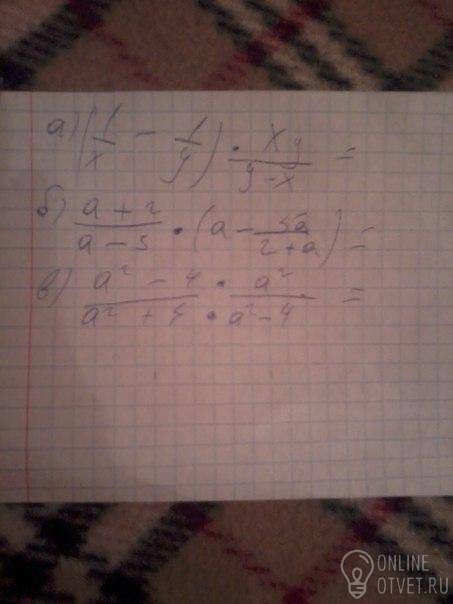 а) (1/x - 1/y) · xy/(y-x) =
б) (a+2)/(a-5) · (a - 5a/(2+a)) =
в) (a² - 4)/(a² + 5) · a²/(a²-4) =
ONLINE
OTVET.RU